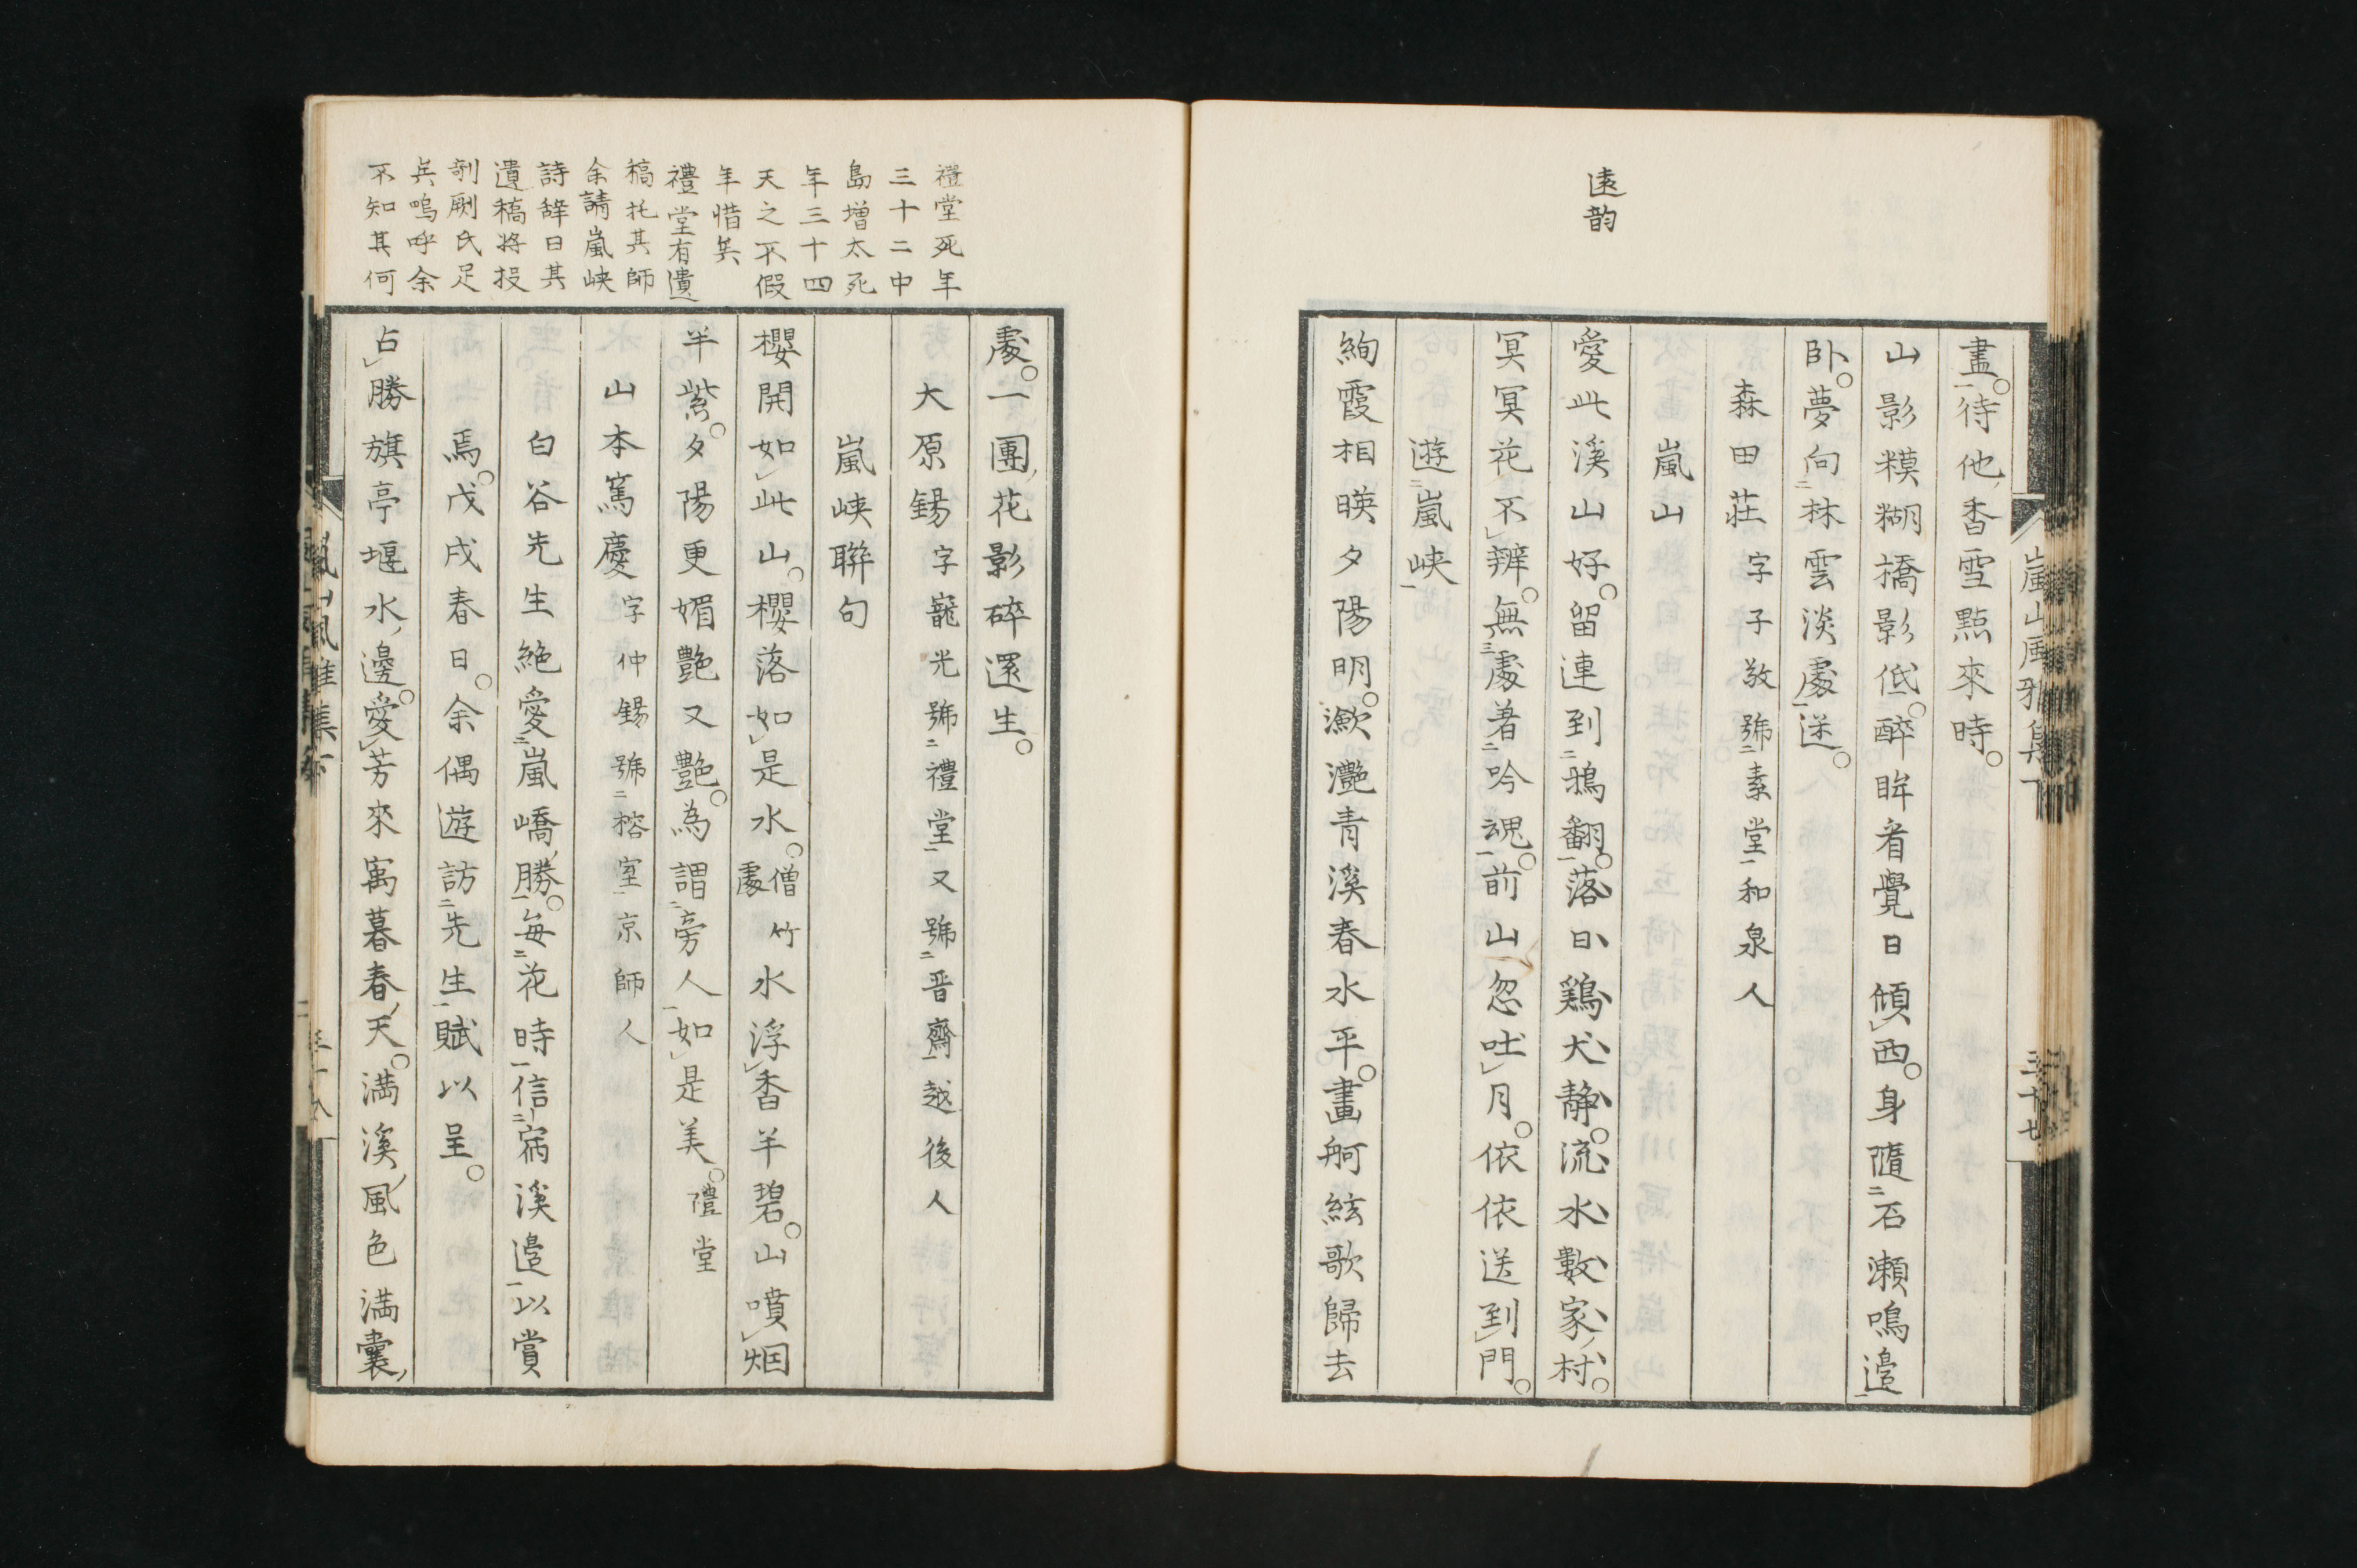 遠韵
嵐山風雅集下
三十七
畫待他香雪點來時
山影糢糊橋影低醉眸看覺日傾西身隨石瀬鳴邊
卧夢向林雲淡處迷
森田莊字子敬號素堂和泉人
嵐山
愛此溪山好留連到鴉翻落日鶏犬静流水數家村
冥冥花不辨無處著吟魂前山忽吐月依依送到門
遊嵐峡
絢霞相暎夕陽明瀲灔青溪春水平畫舸絃歌歸去
禮堂死年
三十二中
島増太死
年三十四
天之不假
年惜矣
禮堂有遺
稿托其師
余請嵐峡
詩辞曰其
遺稿将投
剞劂氏足
矣嗚呼余
不知其何
處一團花影碎還生
大原錫字寵光號禮堂又號晋齋越後人
嵐峡聯句
櫻開如此山櫻落如是水僧處竹水浮香半碧山噴烟
半紫夕陽更媚艷又艷為謂旁人如是美禮堂
山本篤慶字仲錫號榕室京師人
白谷先生絶愛嵐嶠勝毎花時信宿溪邉以賞
焉戊戌春日余偶遊訪先生賦以呈
占勝旗亭堰水邊愛芳來寓暮春天満溪風色満囊